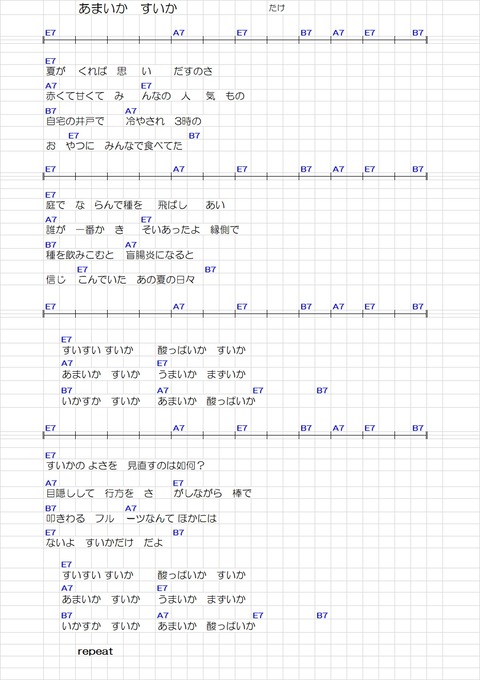 あまいか　すいか　　たけ
E7 A7 E7 B7 A7 E7 B7
E7
夏が　くれば　思　い　だすのさ
A7 E7
赤くて甘くて　み　んなの　人　気　もの
B7 A7
自宅の井戸で　冷やされ　3時の
E7 B7
お　やつに　みんなで食べてた
E7 A7 E7 B7 A7 E7 B7
E7
庭で　な　らんで種を　飛ばし　あい
A7 E7
誰が　一番か　き　そいあったよ　縁側で
B7 A7
種を飲みこむと　盲腸炎になると
E7 B7
信じ　こんでいた　あの夏の日々
E7 A7 E7 B7 A7 E7 B7
E7
すいすい すいか　酸っぱいか　すいか
A7 E7
あまいか　すいか　うまいか　まずいか
B7 A7 E7 B7
いかすか　すいか　あまいか　酸っぱいか
E7 A7 E7 B7 A7 E7 B7
E7
すいかの よさを　見直すのは如何？
A7 E7
目隠しして　行方を　さ　がしながら　棒で
B7 A7
叩きわる　フル　ーツなんて ほかには
E7 B7
ないよ　すいかだけ　だよ
E7
すいすい すいか　酸っぱいか　すいか
A7 E7
あまいか　すいか　うまいか　まずいか
B7 A7 E7 B7
いかすか　すいか　あまいか　酸っぱいか
repeat